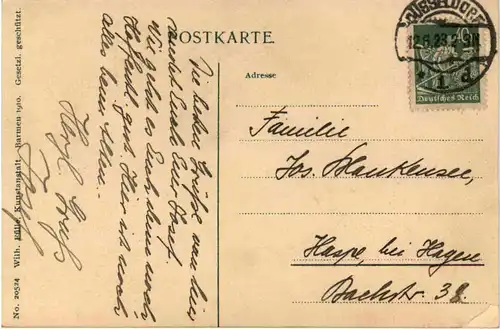 POSTKARTE.
Die besten Grüße von hier
sendet Euch Euer Josef.
Wie geht es Euch, denn noch
hoffentl. gut. Hier ist noch
alles beim Alten.
Herzl. Gruß
Josef
Adresse
Familie
Jos. Blankensee,
Haspe bei Hagen
Bachstr. 38.
DÜSSELDORF
12.6.23
1 d
Deutsches Reich
No. 20524 Wilh. Fülle, Kunstanstalt, Barmen 1910. Gesetzl. geschützt.